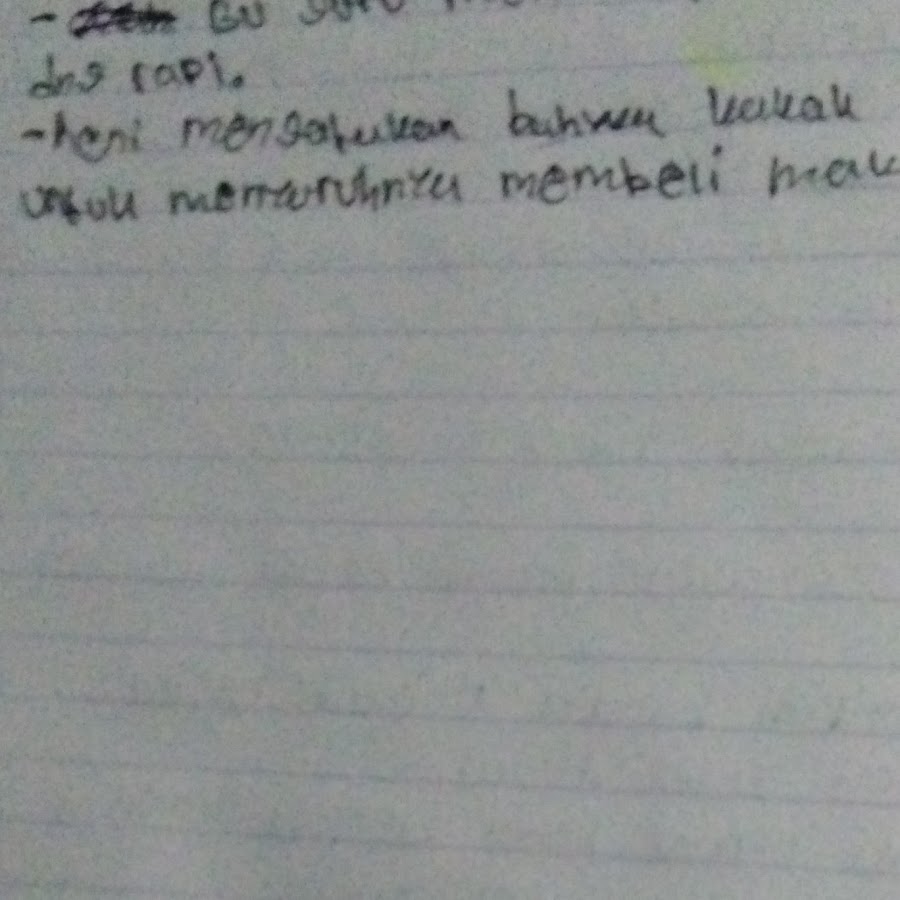 - Bu guru
dng rapi.
- heni mengatukan bahwa kakak
untuk menyuruhnya membeli mak